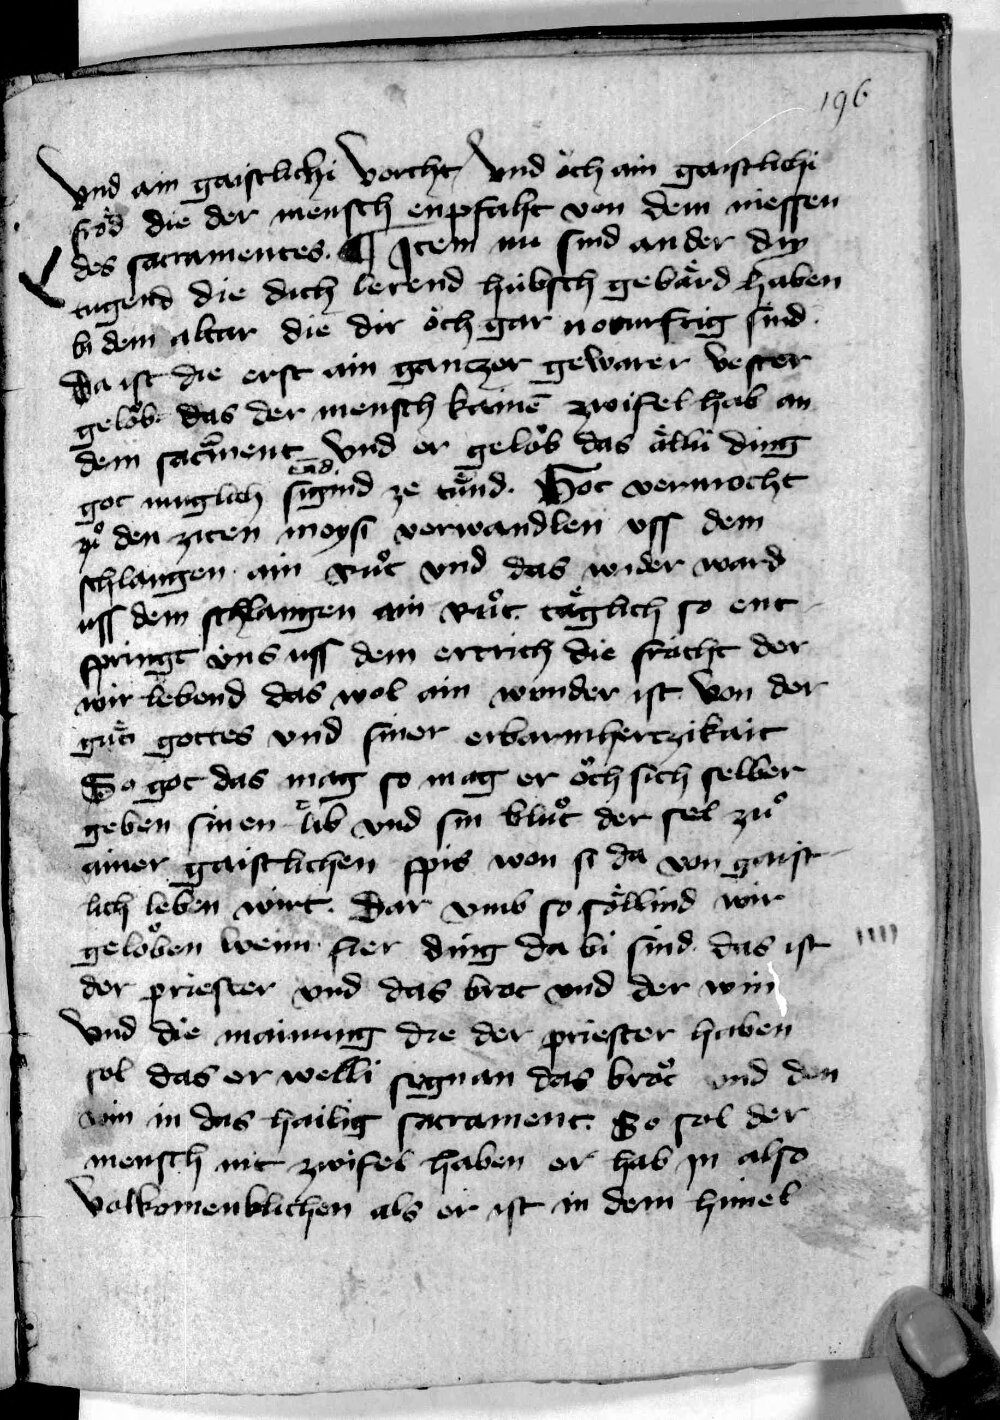 196
Vnd ain gaistlichi Vorcht Vnd öch ain gaistlichi
fröd die der mensch enpfaht von dem niessen
des sacramentes. ¶ Item nu sind ander dry
tugend die dich lerend hübsch gebärd haben
bi dem altar die dir öch gar noturftig sind.
Da ist die erst ain gantzer gewarer vester
gelǒb. das der mensch kainē zwifel hab an
dem sacrment Vnd er gelǒb das ällü ding
got muglich sigind ze tǔnd. Got vermocht
zů den ziten moysi verwandlen vss dem
schlangen ain růt vnd das wider ward
uss dem schlangen ain růt. täglich so ent
springt üns uss dem ertrich die frücht der
wir lebend das wol ain wunder ist von der
gůti gottes vnd siner erbarmhertzikait
So got das mag so mag er öch sich selber
geben sinen lib vnd sin blůt der sel zů
ainer gaistlichen spis won si da von gaist
lich leben wirt. Dar vmb so söllind wir
gelǒben wenn fier ding da bi sind. das ist
IIII
der priester vnd das brot vnd der win
Vnd die mainung die der priester haben
sol das er welli segnan das brǒt vnd den
win in das hailig sacrament. So sol der
mensch nit zwifel haben er hab in also
Volkomenklichen als er ist in dem himel